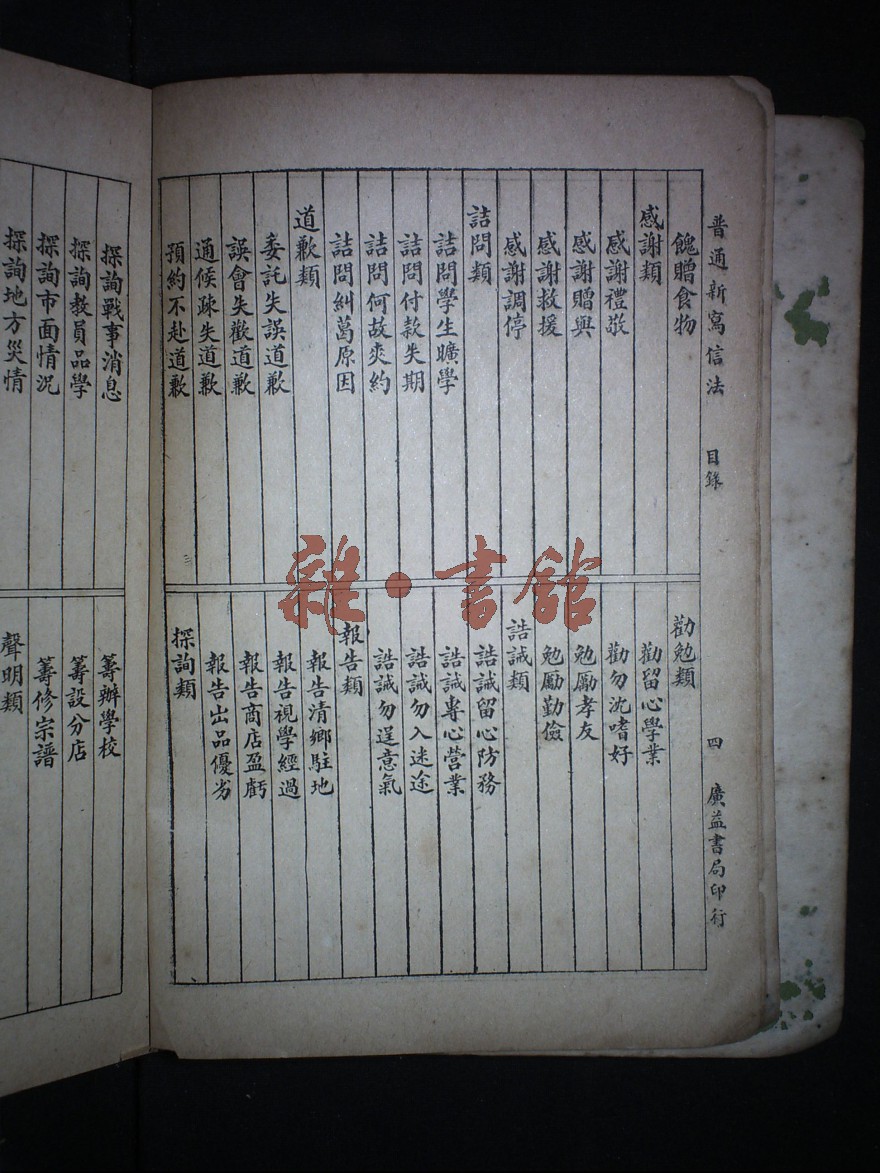 普通新寫信法 目錄 四 廣益書局印行
餽贈食物
感謝類
感謝禮敬
感謝贈與
感謝救援
感謝調停
詰問類
詰問學生曠學
詰問付款失期
詰問何故爽約
詰問糾葛原因
道歉類
委託失誤道歉
誤會失歡道歉
通候疎失道歉
預約不赴道歉
勸勉類
勸留心學業
勸勿沈嗜好
勉勵孝友
勉勵勤儉
誥誡類
誥誡留心防務
誥誡專心營業
誥誡勿入迷途
誥誡勿逞意氣
報告類
報告清鄉駐地
報告視學經過
報告商店盈虧
報告出品優劣
探詢類
探詢戰事消息
探詢教員品學
探詢市面情況
探詢地方災情
籌辦學校
籌設分店
籌修宗譜
聲明類
雜·書館